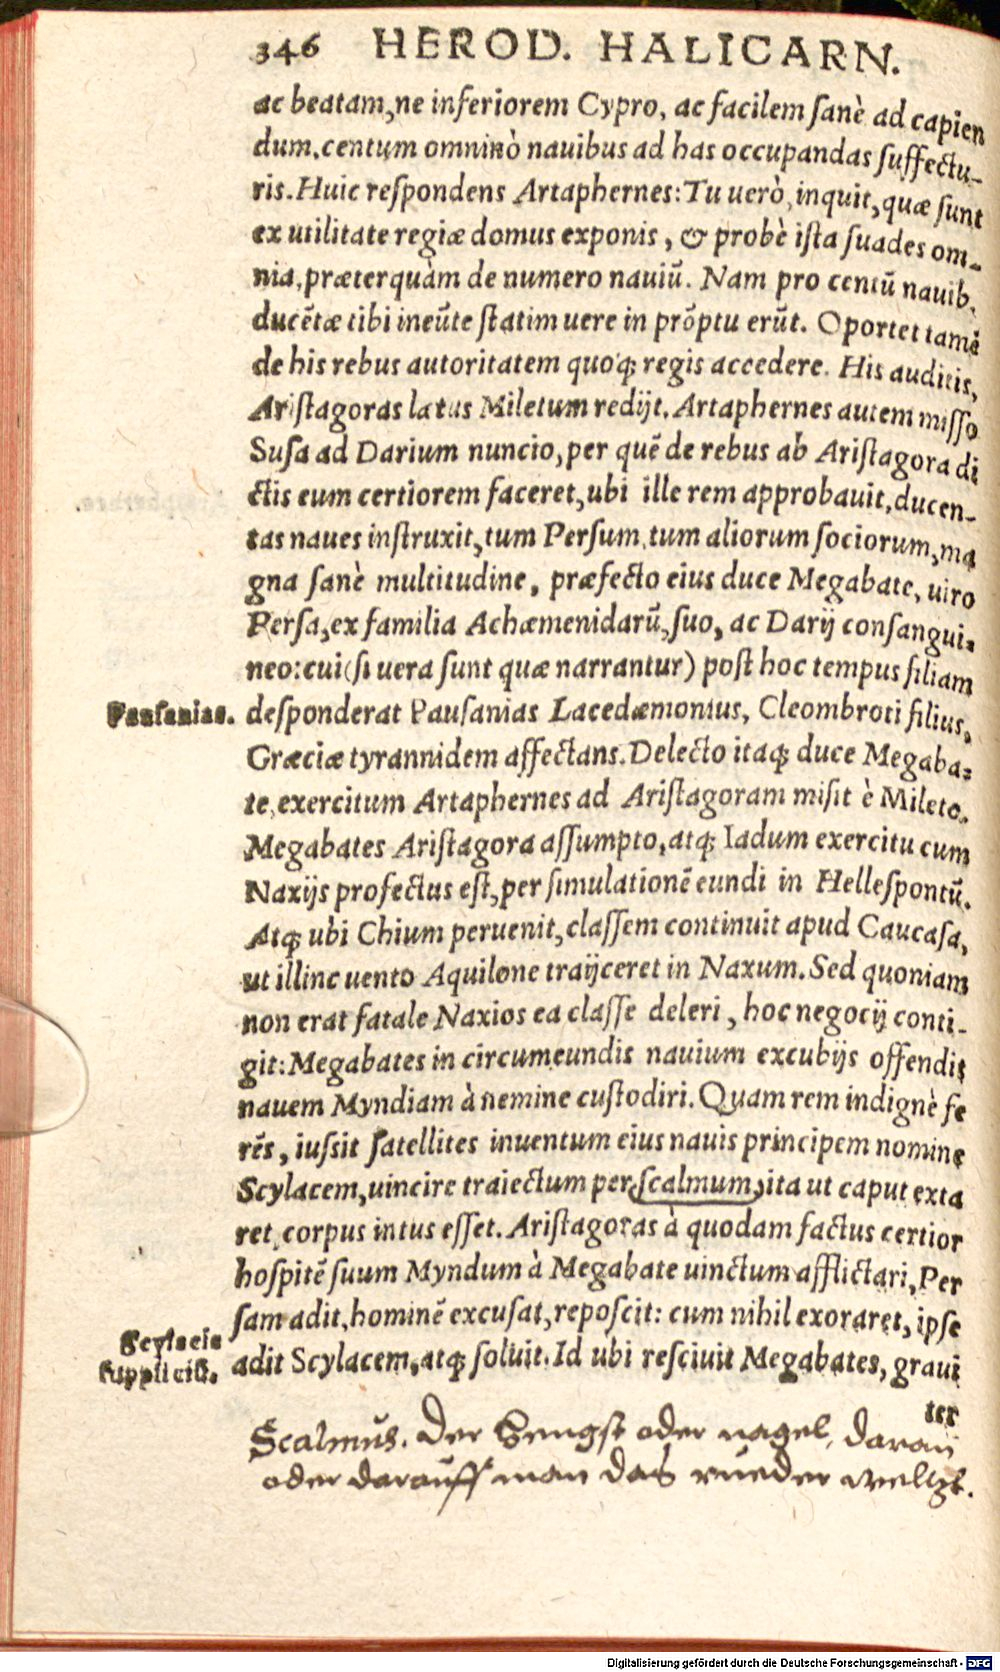 346 HEROD. HALICARN.
ac beatam, ne inferiorem Cypro, ac facilem ſanè ad capien
dum, centum omninò nauibus ad has occupandas ſuffectu-
ris. Huic reſpondens Artaphernes: Tu uerò, inquit, quæ ſunt
ex utilitate regiæ domus exponis, & probè iſta ſuades om-
nia, præterquàm de numero nauiū. Nam pro centū nauib.
ducētæ tibi ineūte ſtatim uere in prōptu erūt. Oportet tamē
de his rebus autoritatem quoqꝫ regis accedere. His auditis,
Ariſtagoras latus Miletum redijt. Artaphernes autem miſſo
Suſa ad Darium nuncio, per quē de rebus ab Ariſtagora di
ctis eum certiorem faceret, ubi ille rem approbauit, ducen-
tas naues inſtruxit, tum Perſum, tum aliorum ſociorum, ma
gna ſanè multitudine, præfecto eius duce Megabate, uiro
Perſa, ex familia Achæmenidarū, ſuo, ac Darij conſangui-
neo: cui (ſi uera ſunt quæ narrantur) poſt hoc tempus filiam
Pauſanias. deſponderat Pauſanias Lacedæmonius, Cleombroti filius,
Græciæ tyrannidem affectans. Delecto itaqꝫ duce Megaba-
te, exercitum Artaphernes ad Ariſtagoram miſit è Mileto.
Megabates Ariſtagora aſſumpto, atqꝫ Iadum exercitu cum
Naxijs profectus eſt, per ſimulationē eundi in Helleſpontū.
Atqꝫ ubi Chium peruenit, claſſem continuit apud Caucaſa,
ut illinc uento Aquilone traijceret in Naxum. Sed quoniam
non erat fatale Naxios ea claſſe deleri, hoc negocij conti-
git: Megabates in circumeundis nauium excubijs offendit
nauem Myndiam à nemine cuſtodiri. Quam rem indignè fe
rēs, iuſsit ſatellites inuentum eius nauis principem nomine
Scylacem, uincire traiectum per ſcalmum, ita ut caput exta
ret, corpus intus eſſet. Ariſtagoras à quodam factus certior
hoſpitē ſuum Myndum à Megabate uinctum afflictari, Per
ſam adit, hominē excuſat, repoſcit: cum nihil exoraret, ipſe
Scylacis
ſuppliciū. adit Scylacem, atqꝫ ſoluit. Id ubi reſciuit Megabates, graui
ter
Scalmus. Der
oder nagel, daran
oder darauff man das rueder